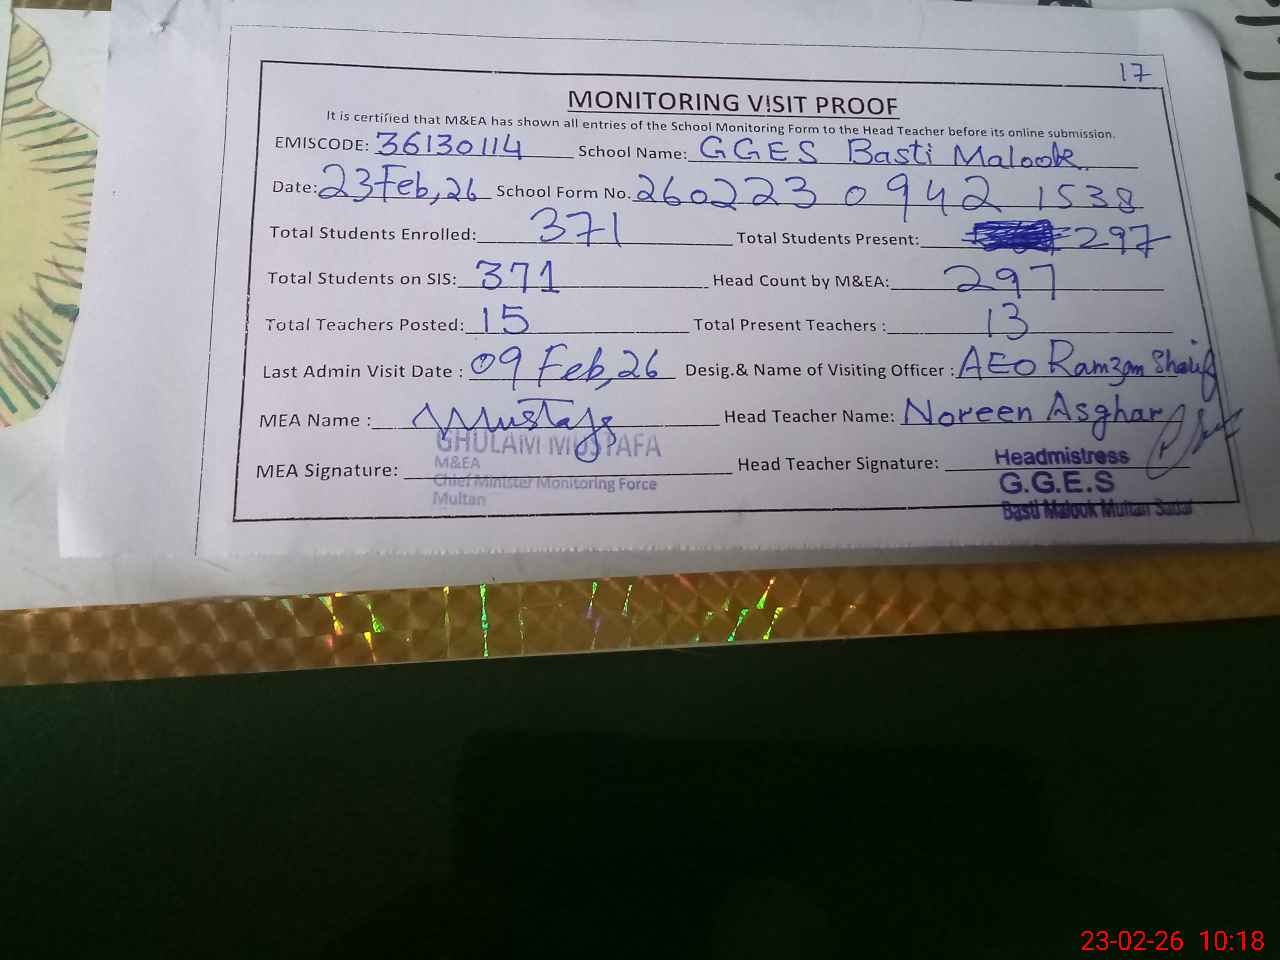 17
MONITORING VISIT PROOF
It is certified that M&EA has shown all entries of the School Monitoring Form to the Head Teacher before its online submission.
EMISCODE: 36130114 School Name: GGES Basti Malook
Date: 23 Feb, 26 School Form No. 260223 0942 1538
Total Students Enrolled: 371 Total Students Present: 297
Total Students on SIS: 371 Head Count by M&EA: 297
Total Teachers Posted: 15 Total Present Teachers : 13
Last Admin Visit Date : 09 Feb, 26 Desig.& Name of Visiting Officer : AEO Ramzan Sharif
MEA Name : Mustafa Head Teacher Name: Noreen Asghar
GHULAM MUSTAFA
M&EA
MEA Signature: Head Teacher Signature: Headmistress
Chief Minister Monitoring Force G.G.E.S
Multan Basti Malook Multan Sadar
23-02-26 10:18